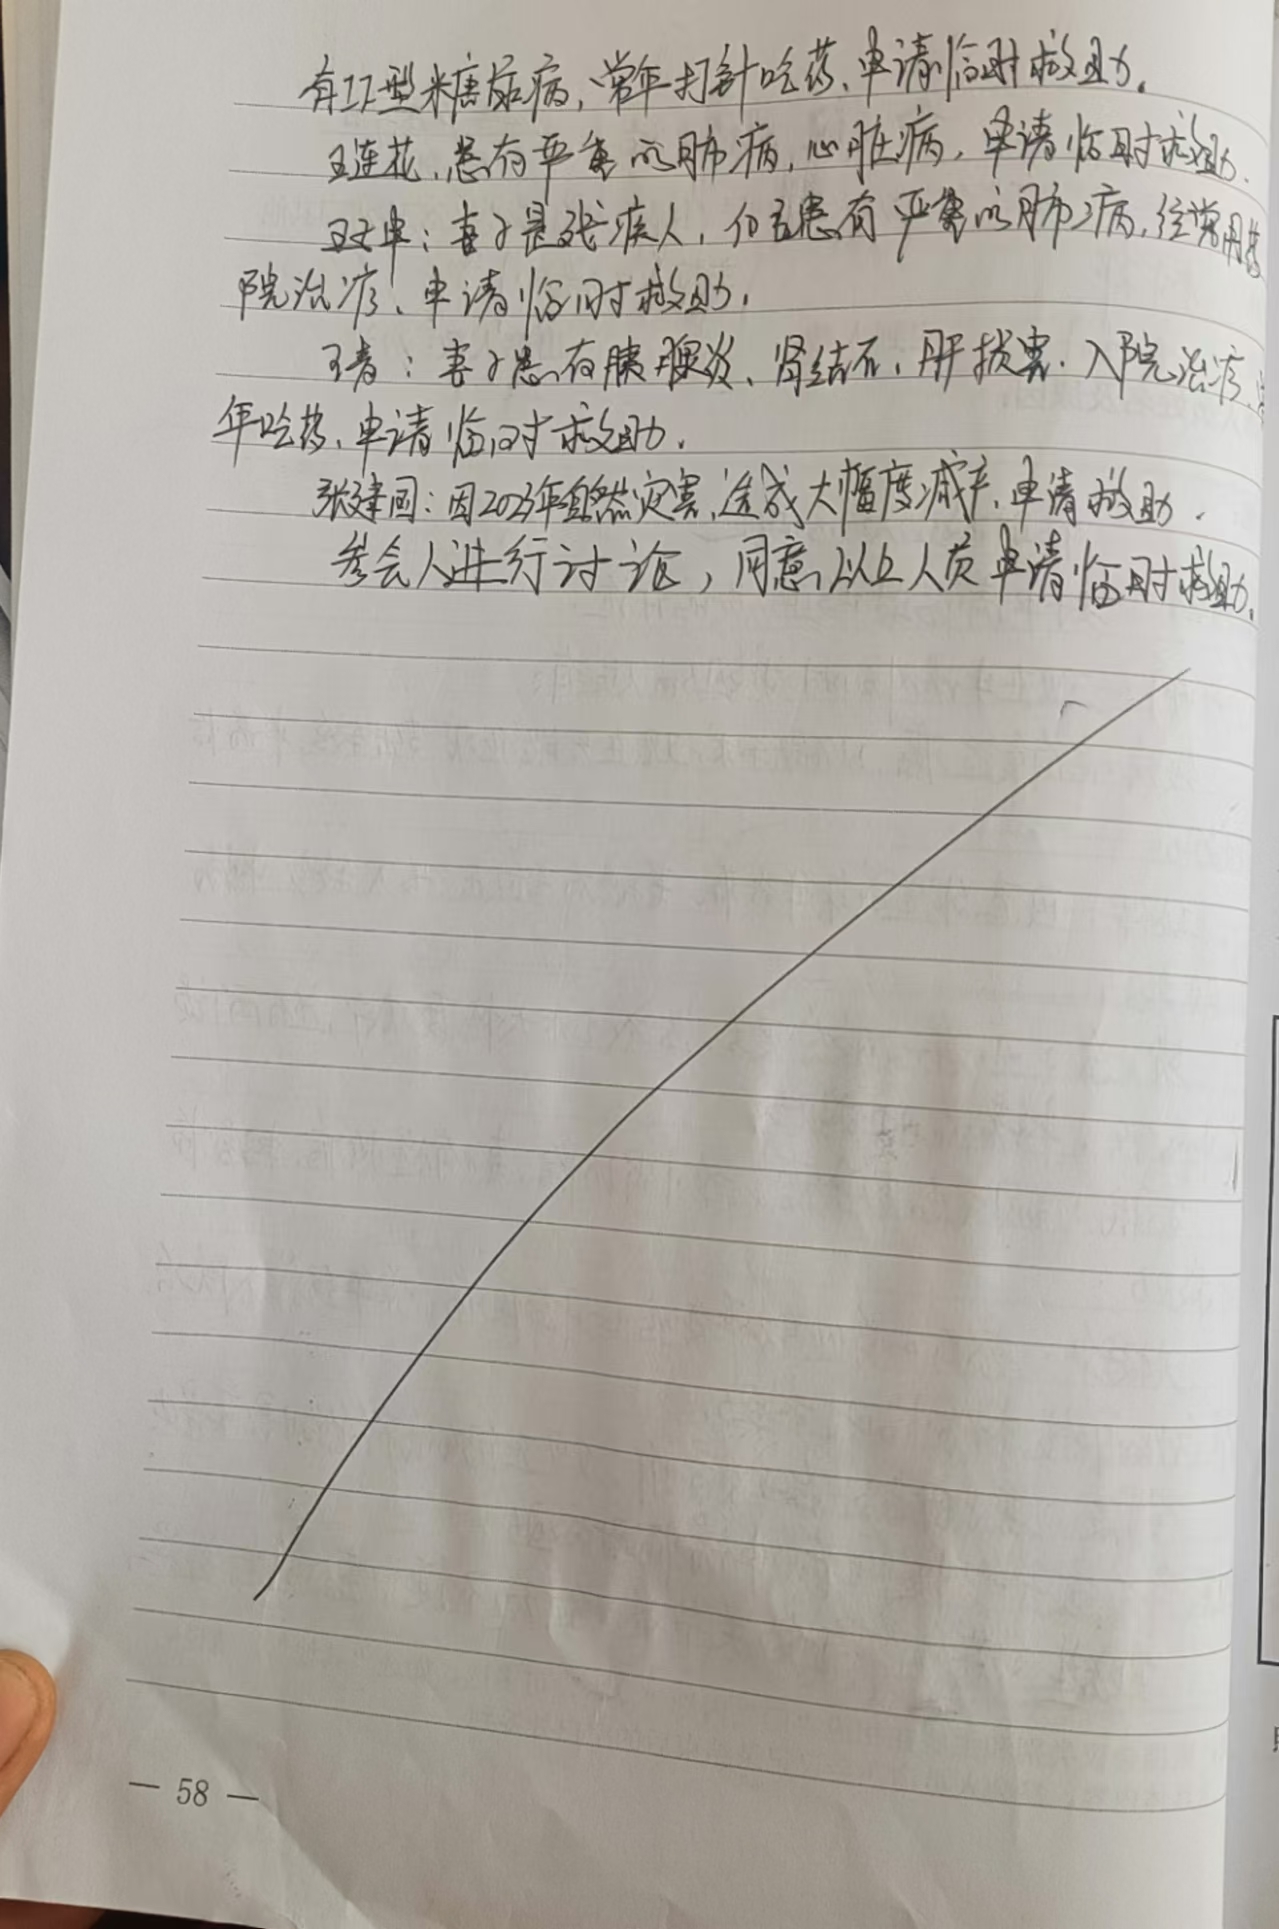 有II型糖尿病,常年打针吃药、申请临时救助。
王连花、患有严重的肺病,心脏病,申请临时救助.
妻子是残疾人,患有严重的肺病,经常用药
院治疗、申请临时救助.
王青:妻子患有胰腺炎、肾结石,肝损害.入院治疗、
年吃药、申请临时救助.
张建国:因2023年自然灾害,造成大幅度减产、申请救助.
参会人进行讨论,同意以上人员申请临时救助.
— 58 —